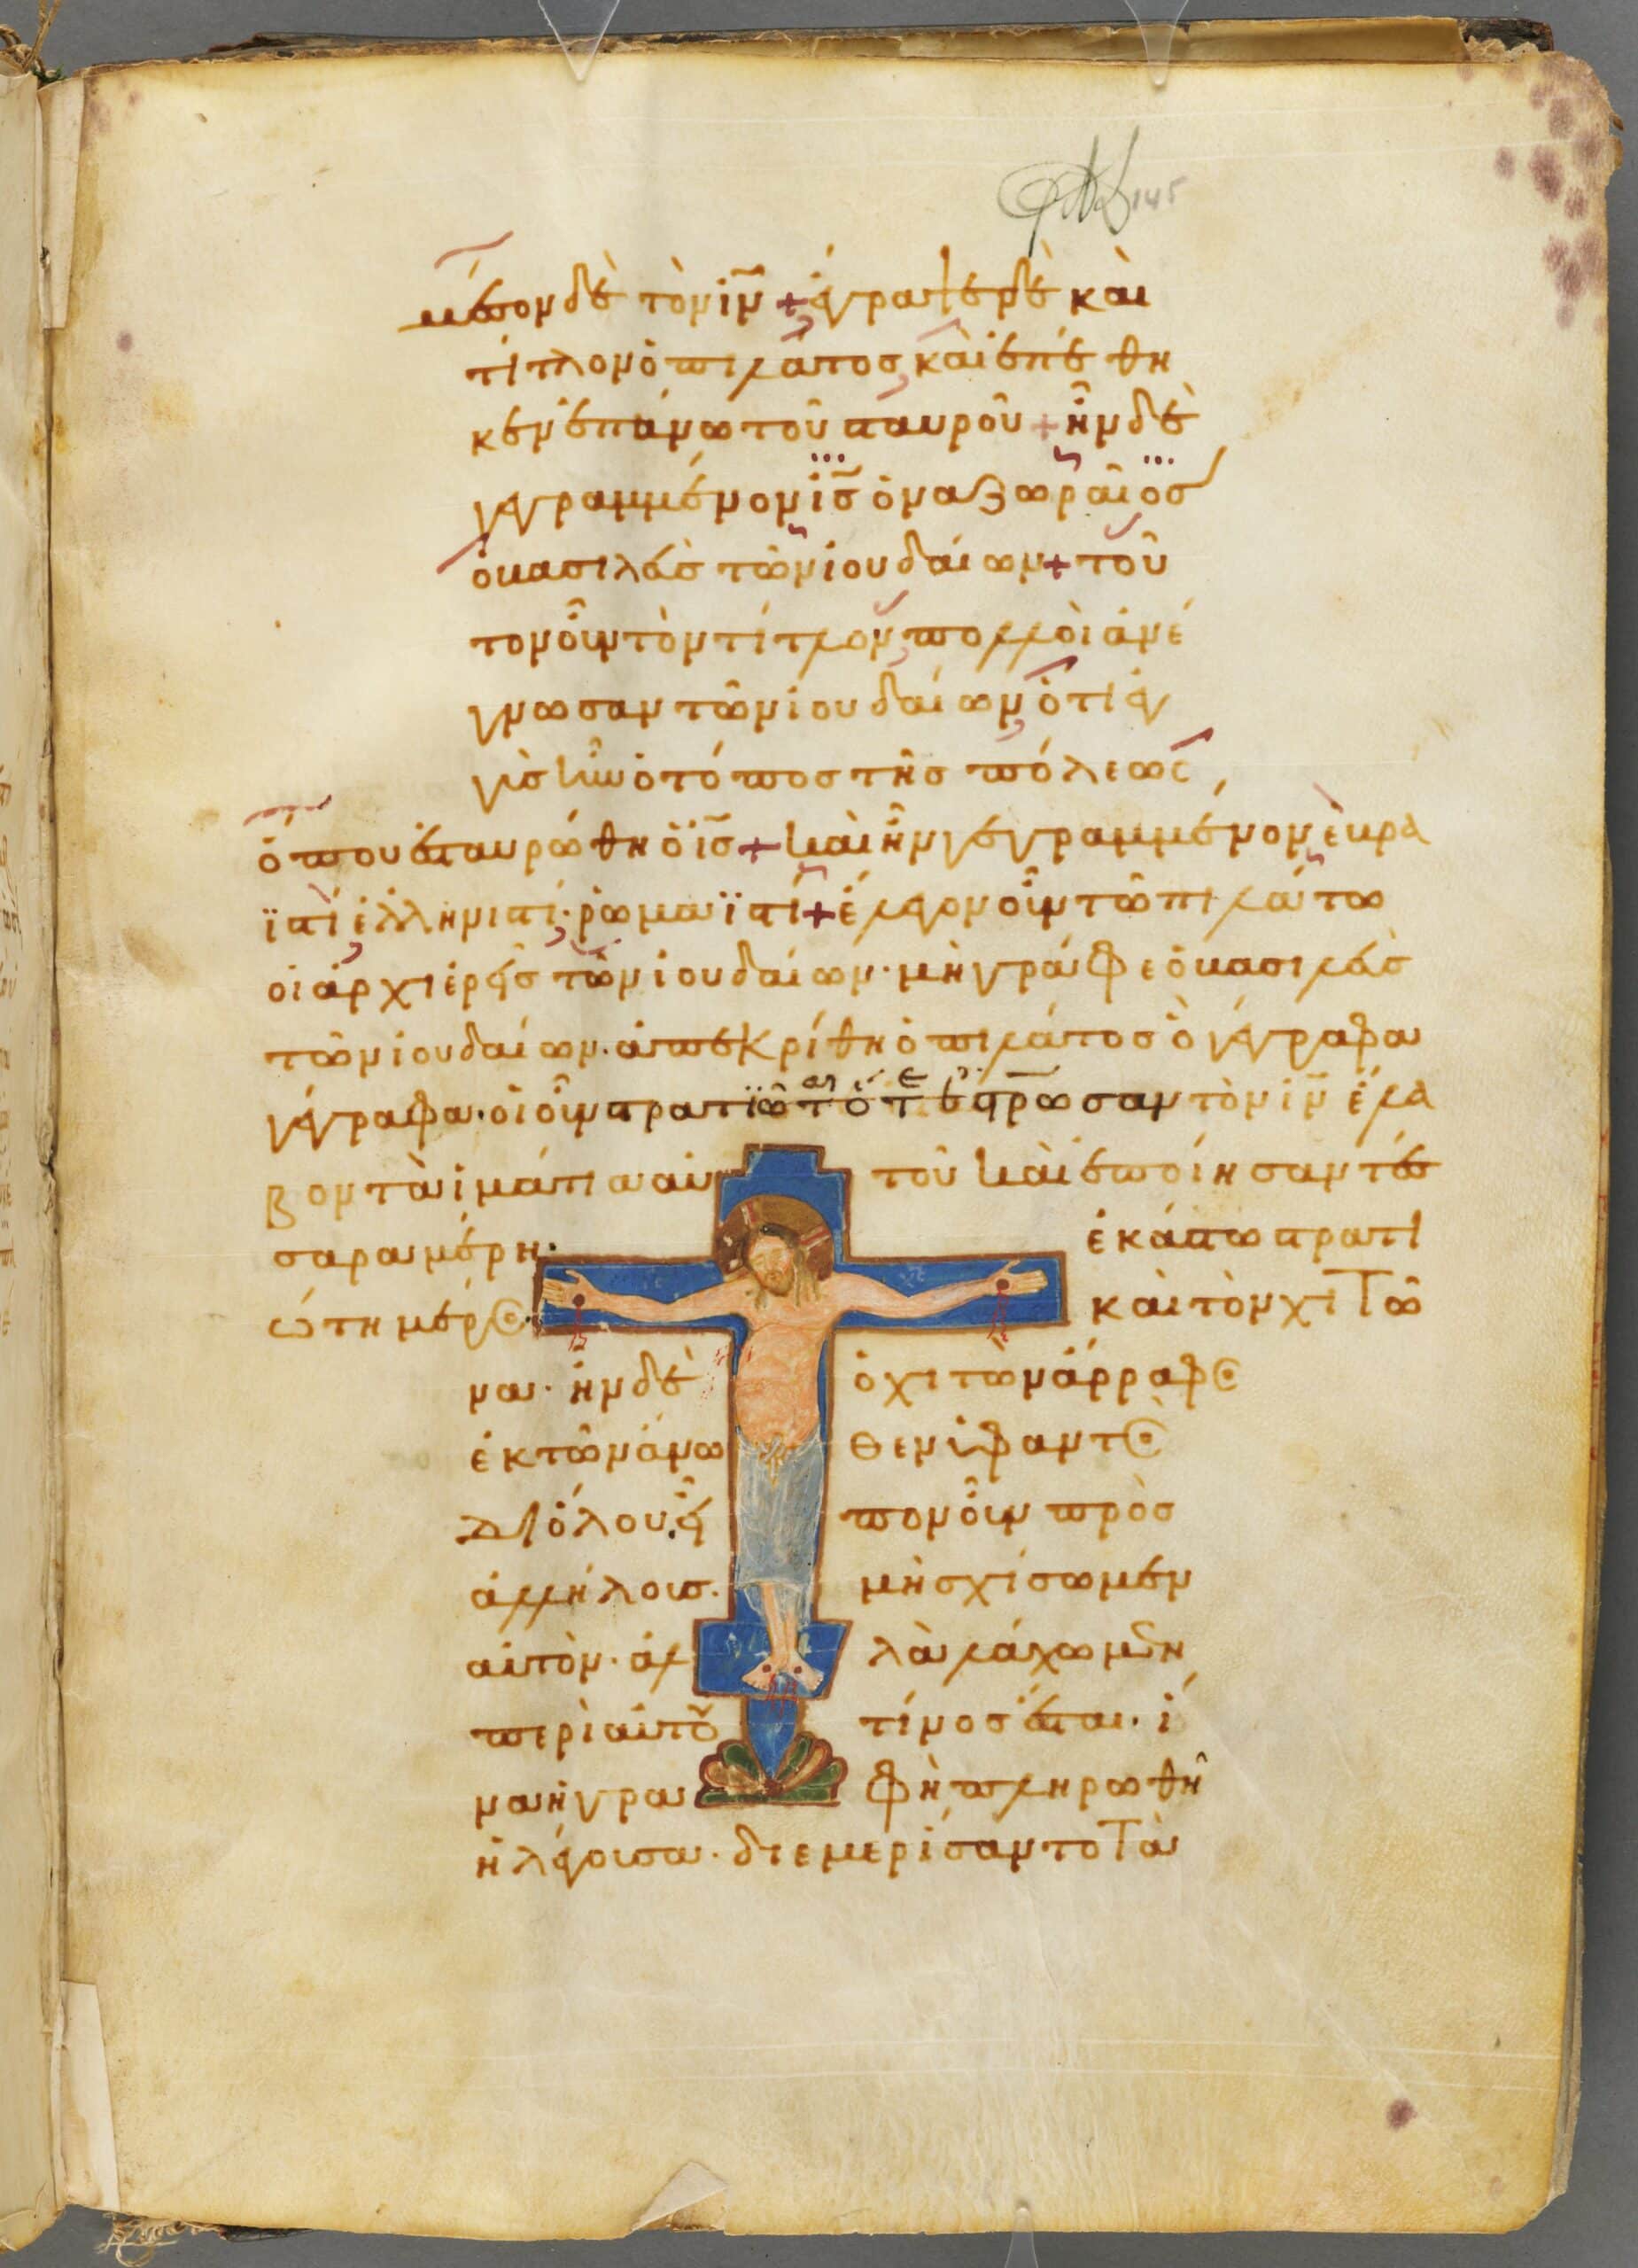 145
μέσον δὲ τὸν ἰν̄ + ἔγραψεν δὲ καὶ
τίτλον ὁ πιλάτος, καὶ ἐπέθη
κεν ἐπάνω τοῦ σταυροῦ + ἦν δὲ
γεγραμμένον ἰς̄ ὁ ναζωραῖος
ὁ βασιλεὺς τῶν ἰουδαίων + τοῦ
τον οὖν τὸν τίτλον, πολλοὶ ἀνέ
γνωσαν τῶν ἰουδαίων, ὅτι ἐγ
γὺς ἦν ὁ τόπος τῆς πόλεως,
ὅπου ἐσταυρώθη ὁ ἰς̄ + καὶ ἦν γέγραμμένον ἑβρα
ϊστὶ, ἑλληνιστί, ῥωμαϊστί + ἔλεγον οὖν τῶ πιλάτω
οἱ ἀρχιερεῖς τῶν ἰουδαίων · μὴ γράφε ὁ βασιλεὺς
τῶν ἰουδαίων · ἀπεκρίθη ὁ πιλάτος ὃ γέγραφα
γέγραφα · οἱ οὖν στρατιῶτ ὅτε ἐσταύρωσαν τὸν ἰν̄ ἔλα
βον τὰ ἱμάτια αὐτοῦ καὶ ἐποίησαν τέσ
σαρα μέρη · ἑκάστω στρατι
ώτη μέρος · καὶ τὸν χιτῶ
να · ἦν δὲ ὁ χιτὼν ἄρραφος
ἐκ τῶν ἄνωθεν ὑφαντὸς
δι' ὅλου · εἶπον οὖν πρὸς
ἀλλήλους · μὴ σχίσωμεν
αὐτὸν · ἀλλὰ λάχωμεν
περὶ αὐτοῦ τίνος ἔσται · ἵ
να ἡ γραφὴ πληρωθῆ
ἡ λέγουσα · διεμερίσαντο τὰ